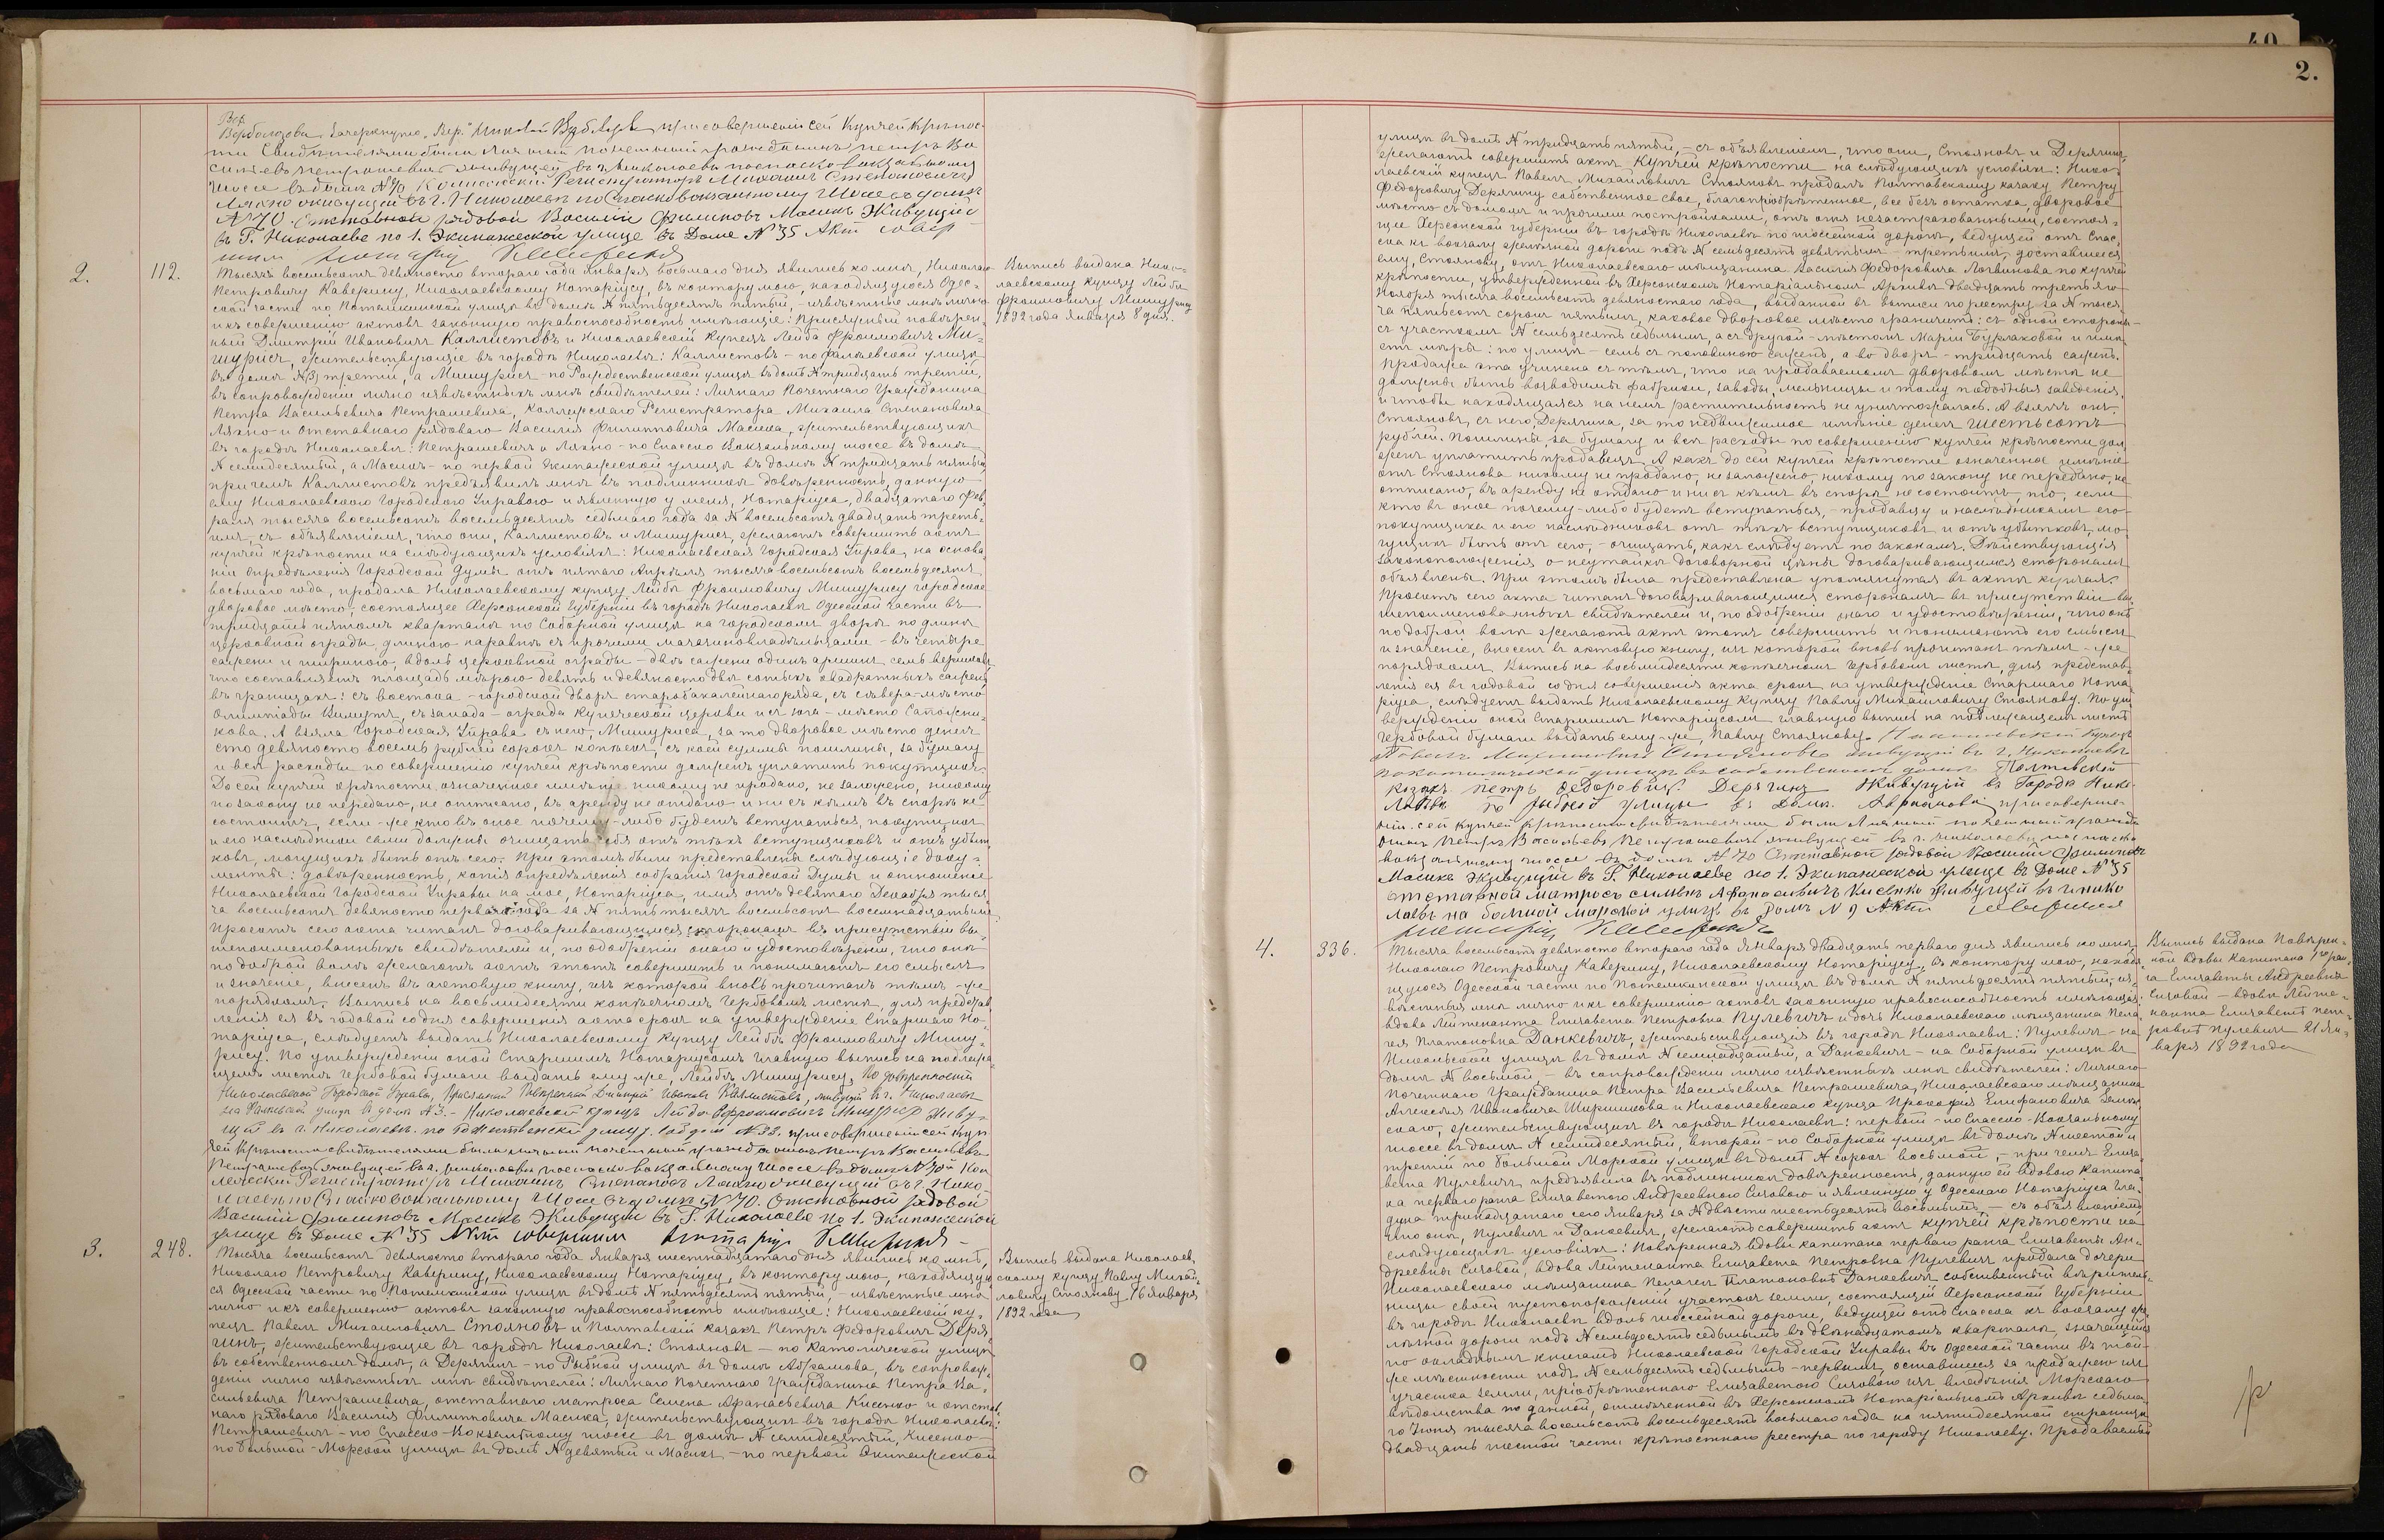 2.
Вер.
Верболозова. Зачеркнуто „Вер." при совершеніи сей купчей крѣпос-
ти свидѣтелями были личный почетный гражданинъ Петръ Ва
сильевъ Петрашевичъ живущей въ г. Николаевѣ по Спаско-Вокзальному
шоссе въ домѣ № 70 Коллежскій Регистраторъ Михаилъ Степановичъ
Ляхно живущій въ г. Николаевѣ по Спасковокзальному шоссе въ домѣ
№ 70. Отставной рядовой Василій Филиповъ Масикъ Живущій
въ Г. Николаеве по 1. Экипажеской улице въ Доме № 35 Актъ
Нотаріусъ
2.
112.
Тысяча восемьсотъ девяносто втораго года Января восьмаго дня явились ко мнѣ, Николаю
Петровичу Каверину, Николаевскому Нотаріусу, въ контору мою, находящуюся Одес-
ской части по Потемкинской улицѣ въ домѣ № пятьдесятъ пятый, - извѣстные мнѣ лично
и къ совершенію актовъ законную правоспособность имѣющіе: Присяжный повѣрен-
ный Дмитрій Ивановичъ Каллистовъ и Николаевскій купецъ Лейба Фроимовичъ Ми-
шурисъ, жительствующіе въ городѣ Николаевѣ: Каллистовъ - по Фалѣевской улицѣ
въ домѣ № третій, а Мишурисъ - по Рождественской улицѣ въ домѣ № тридцать третій,
въ сопровожденіи лично извѣстныхъ мнѣ свидѣтелей: Личнаго Почетнаго Гражданина
Петра Васильевича Петрашевича, Коллежскаго Регистратора Михаила Степановича
Ляхно и отставнаго рядоваго Василія Филипповича Масика, жительствующихъ
въ городѣ Николаевѣ: Петрашевичъ и Ляхно - по Спасско Вокзальному шоссе въ домѣ
№ семидесятый, а Масикъ - по первой Экипажеской улицѣ въ домѣ № тридцать пятый,
при чемъ Каллистовъ предъявилъ мнѣ въ подлинникѣ довѣренность, данную
ему Николаевскою Городскою Управою и явленную у меня, Нотаріуса, двадцатаго Фев-
раля тысяча восемьсотъ восемьдесятъ седьмаго года за № восемьсотъ двадцать треть-
имъ, - съ объявленіемъ, что они, Каллистовъ и Мишурисъ, желаютъ совершить актъ
купчей крѣпости на слѣдующихъ условіяхъ: Николаевская Городская Управа, на основа-
ніи опредѣленія Городской Думы отъ пятаго Апрѣля тысяча восемьсотъ восемьдесятъ
восьмаго года, продала Николаевскому купцу Лейбѣ Фроимовичу Мишурису городское
дворовое мѣсто, состоящее Херсонской Губерніи въ городѣ Николаевѣ Одесской части въ
тридцать пятомъ кварталѣ по Соборной улицѣ на городскомъ дворѣ по длинѣ
церковной ограды, длиною наравнѣ съ прочими магазиновладѣльцами - въ четыре
сажени и шириною, вдоль церковной ограды - двѣ сажени одинъ аршинъ семь вершковъ,
что составляетъ площадь мѣрою девять и девяносто двѣ сотыхъ квадратныхъ сажень,
въ границахъ: съ востока - городской дворъ старобакалейнаго ряда, съ сѣвера - мѣсто
Олимпіады Вимутъ, съ запада - ограда Купеческой церкви и съ юга - мѣсто Сапожни-
кова. А взяла Городская Управа съ него, Мишуриса, за то дворовое мѣсто денегъ
сто девяносто восемь рублей сорокъ копѣекъ, съ коей суммы пошлины, за бумагу
и всѣ расходы по совершенію купчей крѣпости долженъ уплатить покупщикъ.
До сей купчей крѣпости означенное имѣніе никому не продано, не заложено, никому
по закону не передано, не отписано, въ аренду не отдано и ни съ кѣмъ въ спорѣ не
состоитъ, если-же кто въ оное почему-либо будетъ вступаться, покупщикъ
и его наслѣдники сами должны очищать себя отъ тѣхъ вступщиковъ и отъ убыт-
ковъ, могущихъ быть отъ сего. При этомъ были представлены слѣдующіе доку-
менты: довѣренность, копія опредѣленія собранія Городской Думы и отношеніе
Николаевской Городской Управы на мое, Нотаріуса, имя отъ девятаго Декабря тыся-
ча восемьсотъ девяносто перваго года за № пять тысячъ восемьсотъ восемнадцатымъ.
Проектъ сего акта читанъ договаривающимся сторонамъ въ присутствіи вы-
шепоименованныхъ свидѣтелей и, по одобреніи онаго и удостовѣреніи, что они
по доброй волѣ желаютъ актъ этотъ совершить и понимаютъ его смыслъ
и значеніе, внесенъ въ актовую книгу, изъ которой вновь прочитанъ тѣмъ-же
порядкомъ. Выпись на восьмидесяти копѣечномъ Гербовомъ листѣ, для представ-
ленія ея въ годовой со дня совершенія акта срокъ на утвержденіе Старшаго Но-
таріуса, слѣдуетъ выдать Николаевскому купцу Лейбѣ Фроимовичу Мишу-
рису. По утвержденіи оной Старшимъ Нотаріусомъ главную выпись на подлежа-
щемъ листѣ Гербовой бумаги выдать ему-же, Лейбѣ Мишурису. По довѣренности
Николаевской Городской Управы, Присяжный Повѣренный Дмитрій Ивановъ Каллистовъ, живущій въ г. Николаевѣ
на Фалѣевской улицѣ въ домѣ № 3. - Николаевскій купецъ Лейба Фроимовичъ Мишурисъ живу-
щій въ г. Николаевѣ по Рождественской улицѣ въ домѣ № 33. при совершеніи сей куп
чей крѣпости свидѣтелями были личный почетный гражданинъ Петръ Васильевъ
Петрашевичъ живущей въ г. Николаеви по Спаско вокзальному шоссе въ домѣ № 70й Кол
лежскій Регистраторъ Михаилъ Степановъ Ляхно живущій въ г. Нико
лаевѣ по Спасковокзальному Шоссе въ домѣ № 70. Отставной рядовой
Василій Филиповъ Масикъ Живущій въ Г. Николаеве по 1. Экипажеской
улице въ Доме № 35 Актъ совершилъ Нотаріусъ
Выпись выдана Нико-
лаевскому купцу Лейбѣ
Фроимовичу Мишурису
1892 года Января 8 дня.
3.
248.
Тысяча восемьсотъ девяносто втораго года Января шестнадцатаго дня явились ко мнѣ,
Николаю Петровичу Каверину, Николаевскому Нотаріусу, въ контору мою, находящую
ся Одесской части по Потемкинской улицѣ въ домѣ № пятьдесятъ пятый, - извѣстные мнѣ
лично и къ совершенію актовъ законную правоспособность имѣющіе: Николаевскій ку-
пецъ Павелъ Михайловичъ Стояновъ и Полтавскій казакъ Петръ Федоровичъ Деря-
гинъ, жительствующіе въ городѣ Николаевѣ: Стояновъ - по Католической улицѣ
въ собственномъ домѣ, а Дерягинъ - по Рыбной улицѣ въ домѣ Абрамова, въ сопровож-
деніи лично извѣстныхъ мнѣ свидѣтелей: Личнаго Почетнаго Гражданина Петра Ва-
сильевича Петрашевича, отставнаго матроса Семена Афанасьевича Кисенко и отстав-
наго рядоваго Василія Филипповича Масика, жительствующихъ въ городѣ Николаевѣ:
Петрашевичъ - по Спасско-Вокзальному шоссе въ домѣ № семидесятый, Кисенко -
по Большой-Морской улицѣ въ домѣ № девятый и Масикъ - по первой Экипажеской
Выпись выдана Николаев-
скому купцу Павлу Михай-
ловичу Стоянову, 16 Января
1892 года
улицѣ въ домѣ № тридцать пятый, - съ объявленіемъ, что они, Стояновъ и Дерягинъ,
желаютъ совершить актъ купчей крѣпости на слѣдующихъ условіяхъ: Нико-
лаевскій купецъ Павелъ Михайловичъ Стояновъ продалъ Полтавскому казаку Петру
Федоровичу Дерягину собственное свое, благопріобрѣтенное, все безъ остатка, дворовое
мѣсто съ домомъ и прочими постройками, отъ огня незастрахованными, состоя-
щее Херсонской губерніи въ городѣ Николаевѣ по шоссейной дорогѣ, ведущей отъ Спас-
ска къ вокзалу желѣзной дороги подъ № семьдесятъ девятымъ - третьимъ, доставшееся
ему, Стоянову, отъ Николаевскаго мѣщанина Василія Федоровича Логвинова по купчей
крѣпости, утвержденной въ Херсонскомъ Нотаріальномъ Архивѣ двадцать третьяго
Ноября тысяча восемьсотъ девяностаго года, выданной въ выписи по реестру за № тыся-
ча пятьсотъ сорокъ пятымъ, каковое дворовое мѣсто граничитъ: съ одной стороны -
съ участкомъ № семьдесятъ седьмымъ, а съ другой - мѣстомъ Маріи Бурлаковой и имѣ-
етъ мѣры: по улицѣ - семь съ половиною сажень, а во дворъ - тридцать сажень.
Продажа эта учинена съ тѣмъ, что на продаваемомъ дворовомъ мѣстѣ не
должны быть возводимы фабрики, заводы, мельницы и тому подобныя заведенія,
и чтобы находящаяся на немъ растительность не уничтожалась. А взялъ онъ,
Стояновъ, съ него, Дерягина, за то недвижимое имѣніе денегъ шестьсотъ
рублей. Пошлины, за бумагу и всѣ расходы по совершенію купчей крѣпости дол-
женъ уплатить продавецъ. А какъ до сей купчей крѣпости означенное имѣніе
отъ Стоянова никому не продано, не заложено, никому по закону не передано, не
отписано, въ аренду не отдано и ни съ кѣмъ въ спорѣ не состоитъ, то, если
кто въ оное почему-либо будетъ вступаться, - продавцу и наслѣдникамъ его
покупщика и его наслѣдниковъ отъ тѣхъ вступщиковъ и отъ убытковъ, мо-
гущихъ быть отъ сего, - очищать, какъ слѣдуетъ по законамъ. Дѣйствующія
законоположенія о неутайкѣ договорной цѣны договаривающимся сторонамъ
объявлены. При этомъ была представлена упомянутая въ актѣ купчая.
Проектъ сего акта читанъ договаривающимся сторонамъ въ присутствіи вы-
шепоименованныхъ свидѣтелей и, по одобреніи онаго и удостовѣреніи, что они
по доброй волѣ желаютъ актъ этотъ совершить и понимаютъ его смыслъ
и значеніе, внесенъ въ актовую книгу, изъ которой вновь прочитанъ тѣмъ-же
порядкомъ. Выпись на восьмидесяти копѣечномъ Гербовомъ листѣ, для представ-
ленія ея въ годовой со дня совершенія акта срокъ на утвержденіе Старшаго Нота-
ріуса, слѣдуетъ выдать Николаевскому купцу Павлу Михайловичу Стоянову. По ут-
вержденіи оной Старшимъ Нотаріусомъ главную выпись на подлежащемъ листѣ
Гербовой бумаги выдать ему-же, Павлу Стоянову. Николаевскій Купецъ
Павелъ Михайловичъ Стояновъ живущій въ г. Николаевѣ
по католической улицѣ въ собственномъ домѣ Полтавскій
козакъ Петръ Федоровичъ Дерягинъ Живущій въ Городѣ Нико
лаевѣ по Рыбной улицы въ Доме Абрамова при соверше-
ніи сей купчей крѣпости свидѣтелями были Личный почетный гражда
нинъ Петръ Васильевъ Петрашевичъ живущей въ г. Николаеви по спаско
вокзальному шоссе въ домѣ № 70 Отставной рядовой Василій Филиповъ
Масикъ Живущій въ Г. Николаеве по 1. Экипажеской улице въ Доме № 35
отставной матросъ Симѣнъ Афанасьевичъ Кисенко живущей въ г нико
лаевѣ на болшой морской улицѣ въ Домѣ № 9 Актъ совершилъ
Нотаріусъ
4.
336.
Тысяча восемьсотъ девяносто втораго года Января двадцать перваго дня явились ко мнѣ,
Николаю Петровичу Каверину, Николаевскому Нотаріусу, въ контору мою, находя-
щуюся Одесской части по Потемкинской улицѣ въ домѣ № пятьдесятъ пятый, из-
вѣстныя мнѣ лично и къ совершенію актовъ законную правоспособность имѣющія:
вдова Лейтенанта Елизавета Петровна Пулевичъ и дочь Николаевскаго мѣщанина Пела-
гея Платоновна Данкевичъ, жительствующія въ городѣ Николаевѣ: Пулевичъ - на
Никольской улицѣ въ домѣ № семнадцатый, а Данкевичъ - на Соборной улицѣ въ
домѣ № восьмой - въ сопровожденіи лично извѣстныхъ мнѣ свидѣтелей: Личнаго
Почетнаго Гражданина Петра Васильевича Петрашевича, Николаевскаго мѣщанина
Алексѣя Ивановича Ширшикова и Николаевскаго купца Прокофія Епифановича
скаго, жительствующихъ въ городѣ Николаевѣ: первый - по Спасско-Вокзальному
шоссе въ домѣ № семидесятый, второй - по Соборной улицѣ въ домѣ № шестой и
третій по Большой Морской улицѣ въ домѣ № сорокъ восьмой, - при чемъ Елиза-
вета Пулевичъ предъявила въ подлинникѣ довѣренность, данную ей вдовою Капита-
на перваго ранга Елизаветою Андреевною Сиговою и явленную у Одесскаго Нотаріуса
тринадцатаго сего Января за № двѣсти шестьдесятъ восьмымъ, - съ объявленіемъ,
что онѣ, Пулевичъ и Данкевичъ, желаютъ совершить актъ купчей крѣпости на
слѣдующихъ условіяхъ: Повѣренная вдовы капитана перваго ранга Елизаветы Ан-
дреевны Сиговой, вдова Лейтенанта Елизавета Петровна Пулевичъ продала дочери
Николаевскаго мѣщанина Пелагеѣ Платоновнѣ Данкевичъ собственный вѣритель-
ницы своей пустопорожній участокъ земли, состоящій Херсонской Губерніи
въ городѣ Николаевѣ вдоль шоссейной дороги, ведущей отъ Спасска къ вокзалу же-
лѣзной дороги подъ № семьдесятъ седьмымъ въ двѣнадцатомъ кварталѣ, значащійся
по окладнымъ книгамъ Николаевской Городской Управы въ Одесской части въ той-
же мѣстности подъ № семьдесятъ седьмымъ - первымъ, оставшееся за продажею изъ
участка земли, пріобрѣтеннаго Елизаветою Сиговою изъ владѣнія Морскаго
вѣдомства по данной, отмѣченной въ Херсонскомъ Нотаріальномъ Архивѣ седьма-
го Іюня тысяча восемьсотъ восемьдесятъ восьмаго года на пятидесятой страницѣ
двадцать шестой части крѣпостнаго реестра по городу Николаеву. Продаваемый
Выпись выдана Повѣрен-
ной вдовы Капитана 1 ран-
га Елизаветы Андреевны
Сиговой - вдовѣ Лейте-
нанта Елизаветѣ Пет-
ровнѣ Пулевичъ 21 Ян-
варя 1892 года